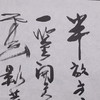 半畝方
一鑒開天
影共